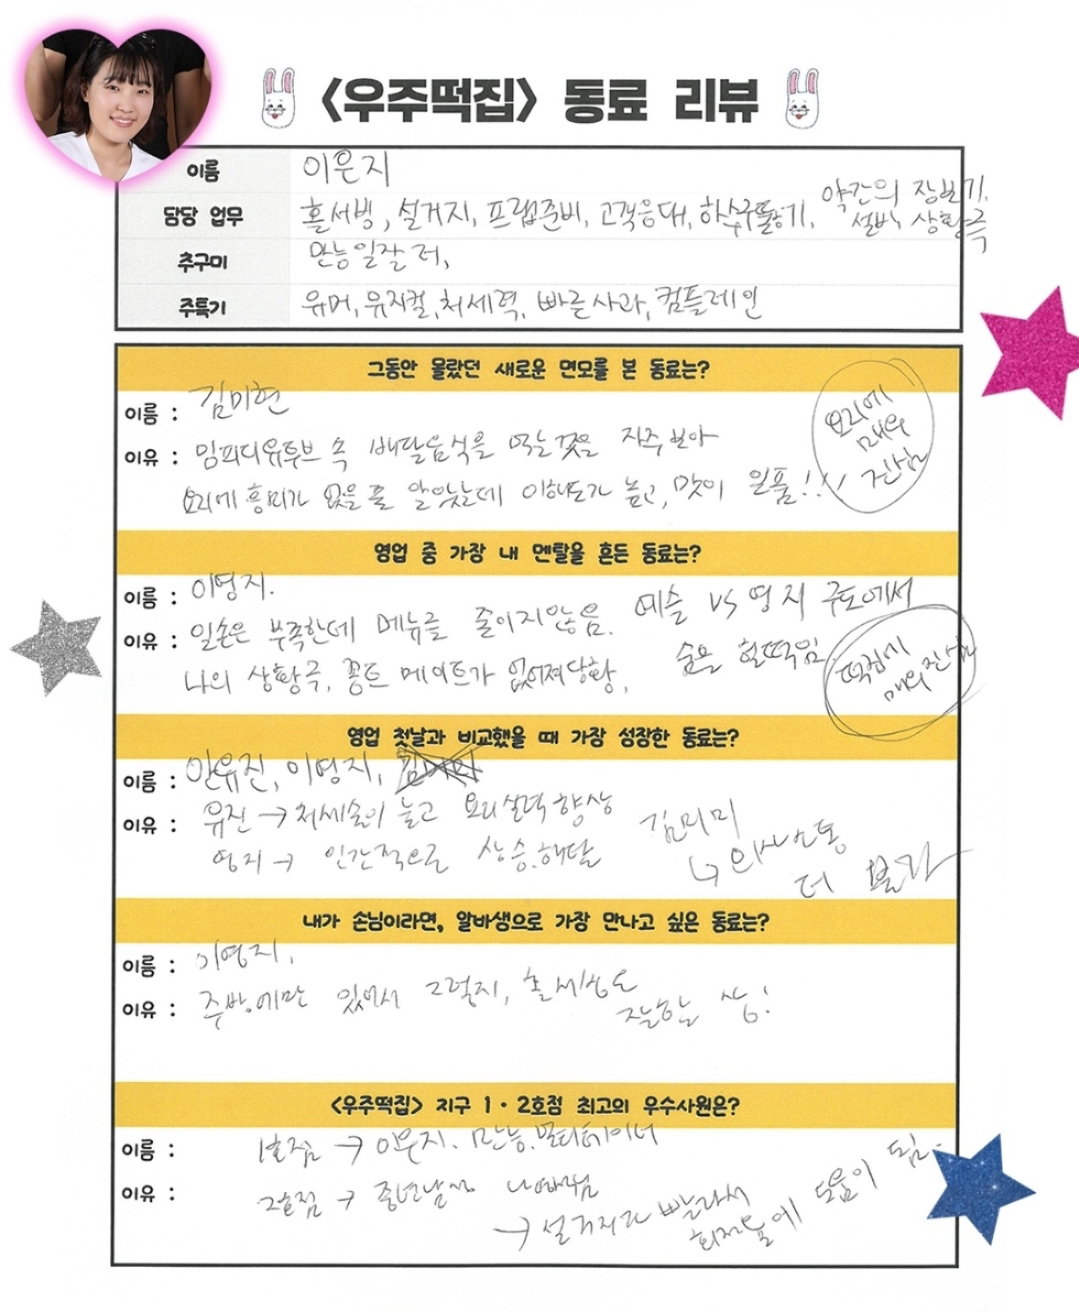 <우주떡집> 동료 리뷰
이름 이은지
담당 업무 홀서빙, 설거지, 프렙준비, 고객응대, 하수구뚫기, 약간의 장보기, 설비, 상황극
추구미 만능일잘러,
주특기 유머, 뮤지컬, 처세력, 빠른사과, 컴플레인
그동안 몰랐던 새로운 면모를 본 동료는?
이름 : 김미현
이유 : 밈피디유투브 속 배달음식을 먹는것을 자주 보아
요리에 흥미가 없을 줄 알았는데 이해도가 높고, 맛이 일품!!
요리에
매우
진심
영업 중 가장 내 멘탈을 흔든 동료는?
이름 : 이영지.
이유 : 일손은 부족한데 메뉴를 줄이지않음.
나의 상황극, 콩트 메이트가 없어져당황,
예슬 vs 영지 구도에서
숨을 헐떡임
떡집에
매우진심
영업 첫날과 비교했을 때 가장 성장한 동료는?
이름 : 안유진, 이영지,
이유 : 유진 → 처세술이 늘고 요리실력향상
영지 → 인간적으로 상승.해탈
김미미
↳ 의사소통
더 불가
내가 손님이라면, 알바생으로 가장 만나고 싶은 동료는?
이름 : 이영지.
이유 : 주방에만 있어서 그렇지, 홀서빙도
잘할 상!
<우주떡집> 지구 1·2호점 최고의 우수사원은?
이름 : 1호점 → 이은지. 만능.엔터테이너
이유 : 2호점 → 중년남성 나PD님
→ 설거지가 빨라서
회전율에 도움이 됨.